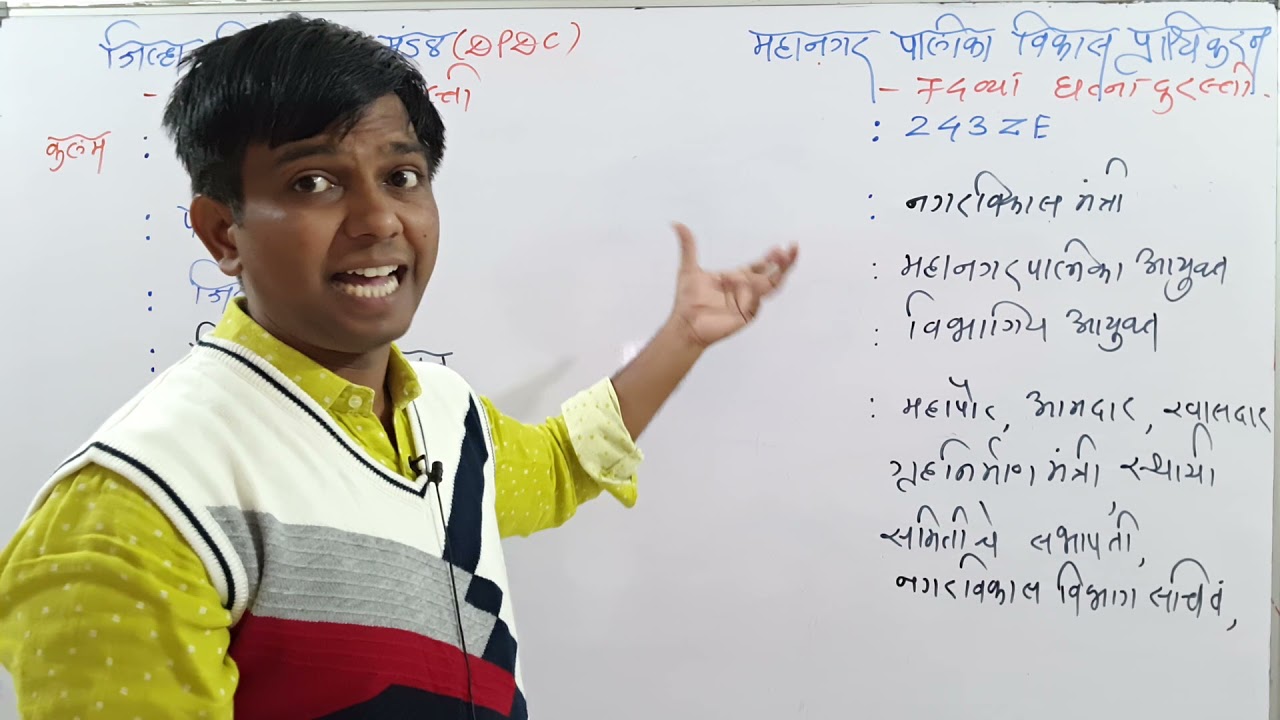 जिल्हा मंडळ (DPDC)
-
कलम :
:
:
:
महानगर पालिका विकास प्राधिकरण
- 74व्या घटनादुरुस्ती.
: 243ZE
: नगरविकास मंत्री
: महानगरपालिका आयुक्त
: विभागिय आयुक्त
: महापौर, आमदार, खासदार
गृहनिर्माण मंत्री, स्थायी
समितीचे सभापती,
नगरविकास विभाग सचिव,